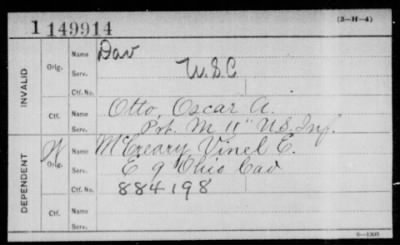 (3-H-4)
1 149914
INVALID
Orig. Name Dav
Serv. W.S.C
Ctf. No.
Ctf. Name Otto, Oscar A.
Serv. Pvt. M 11" U.S. Inf.
DEPENDENT
W Orig. Name McCreary Vinel E.
Serv. E 9 Ohio Cav
Ctf. No. 884198
Ctf. Name
Serv.